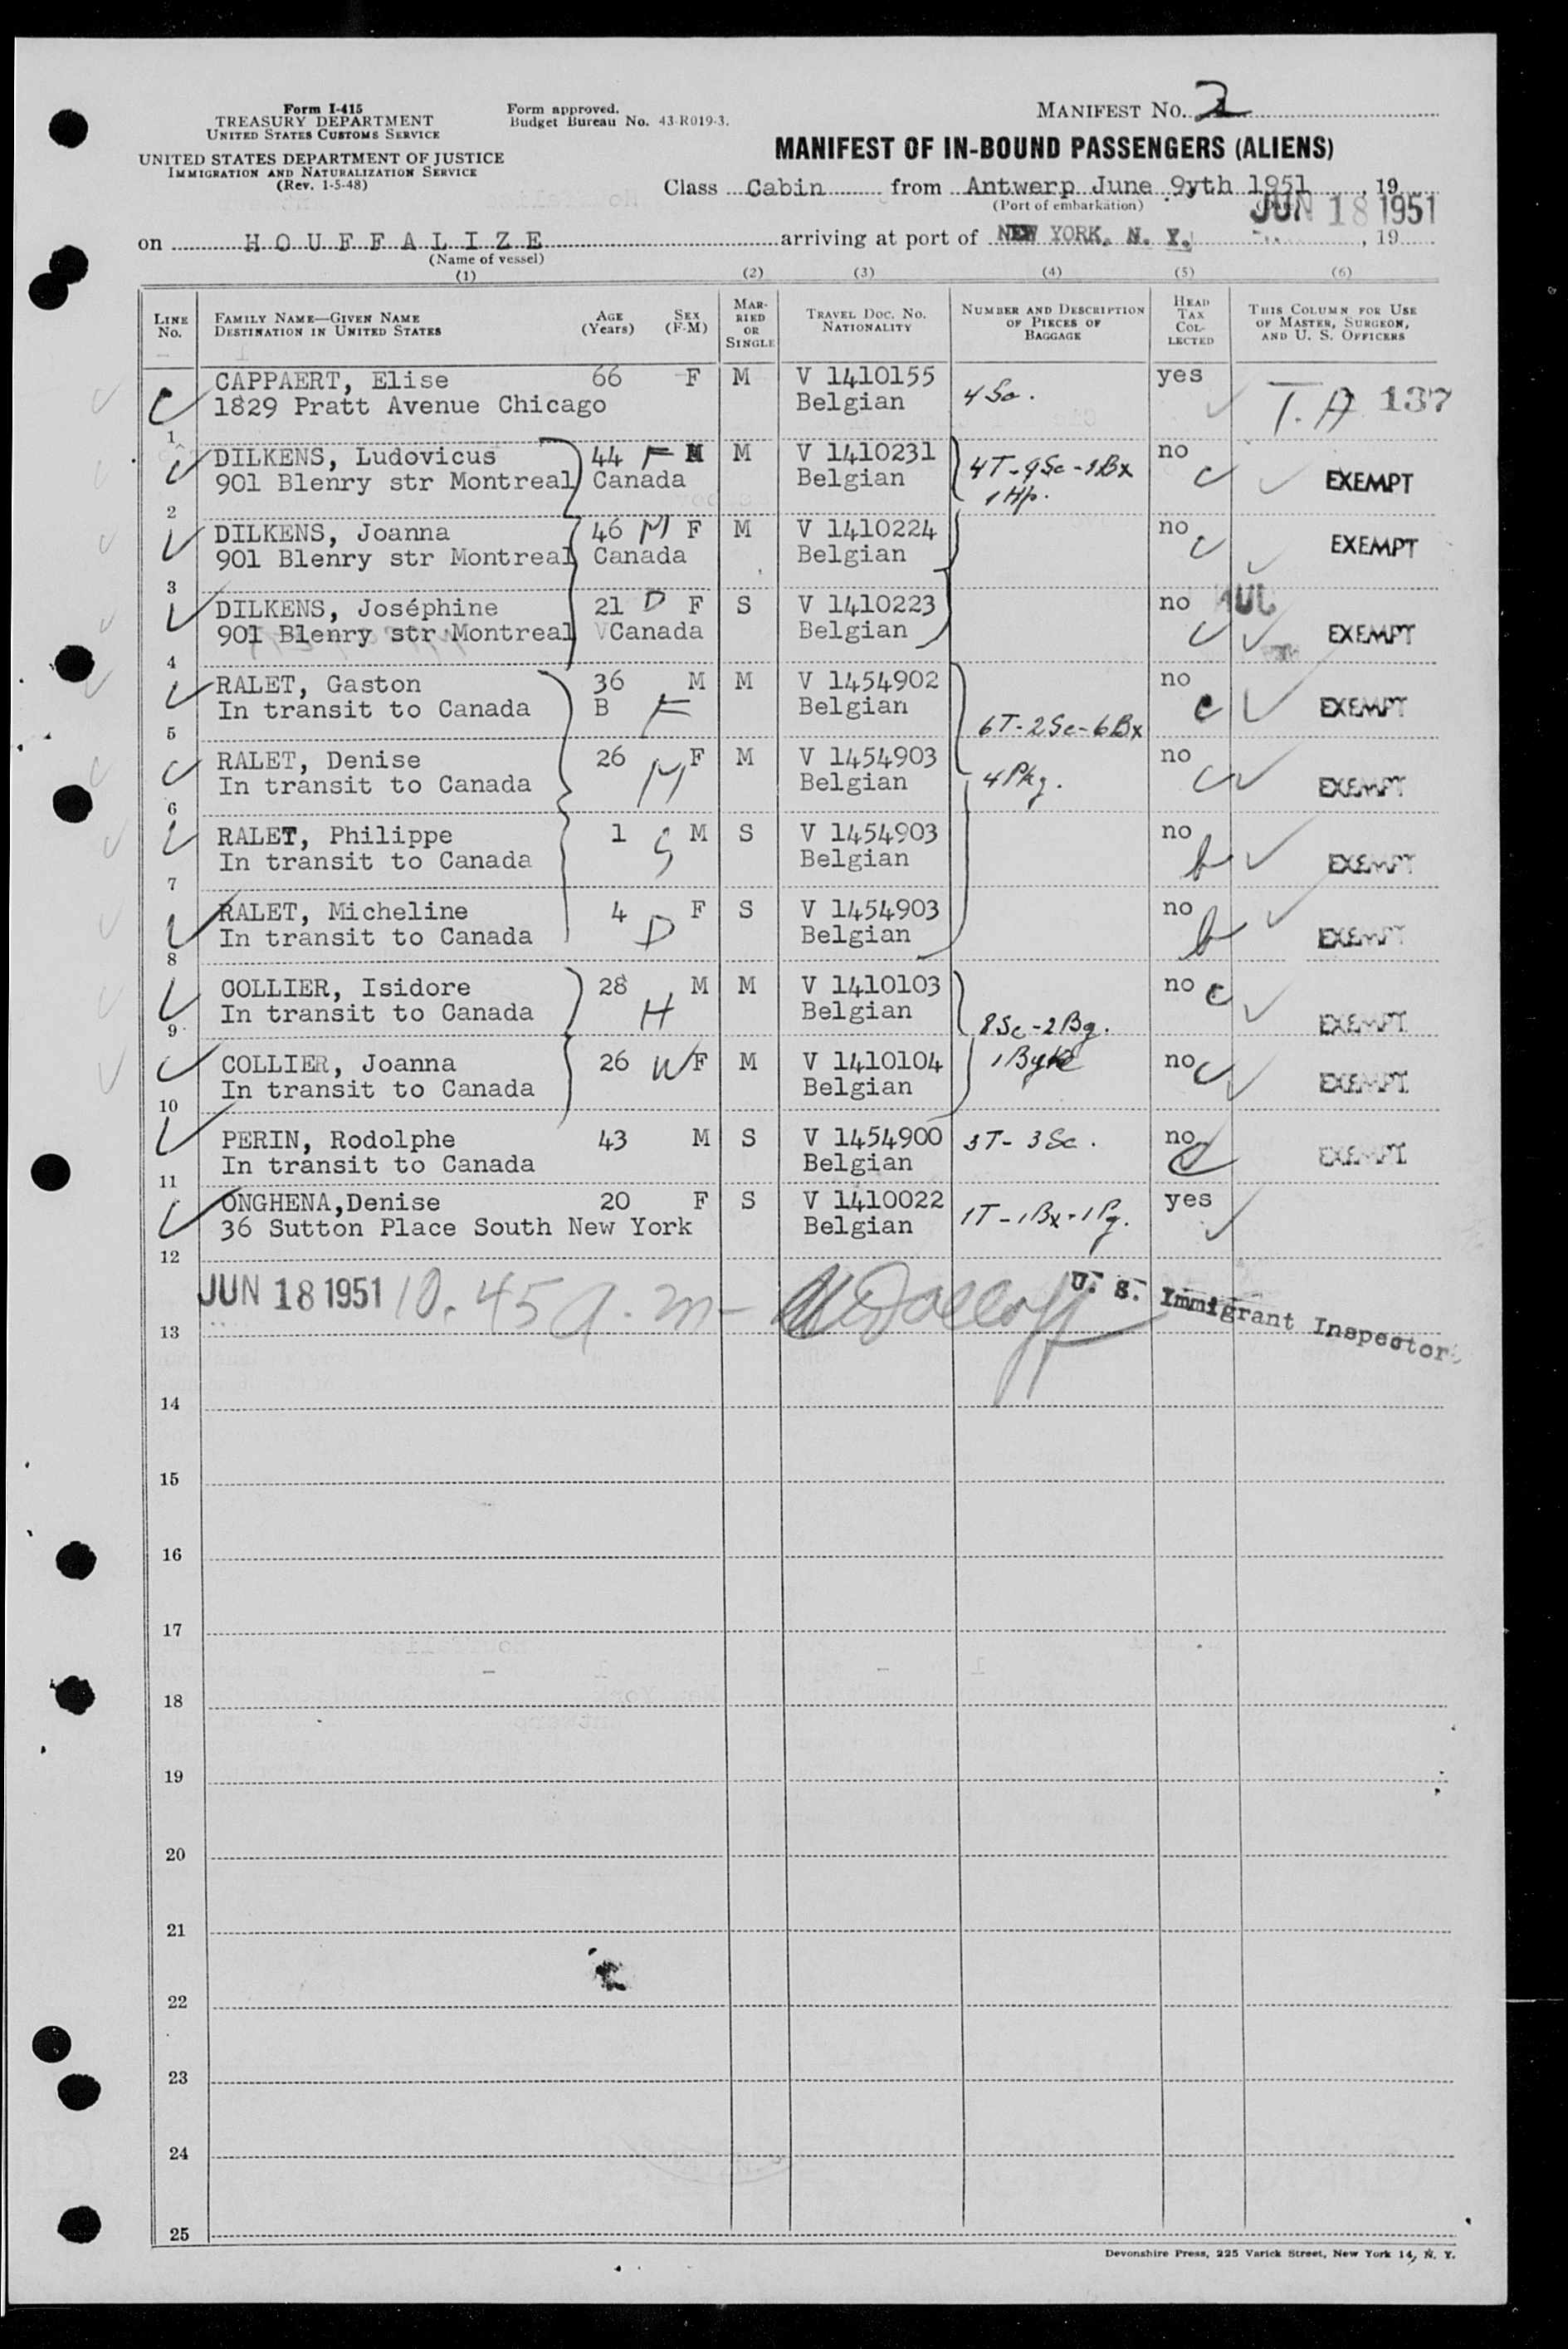 Form I-415
TREASURY DEPARTMENT
UNITED STATES CUSTOMS SERVICE
UNITED STATES DEPARTMENT OF JUSTICE
IMMIGRATION AND NATURALIZATION SERVICE
(Rev. 1-5-48)
Form approved.
Budget Bureau No. 43-R019-3.
MANIFEST NO. 2
MANIFEST OF IN-BOUND PASSENGERS (ALIENS)
Class Cabin from Antwerp June 9yth 1951, 19
(Port of embarkation) (Date)
JUN 18 1951
on HOUFFALIZE arriving at port of NEW YORK, N. Y. , 19
(Name of vessel)
(1) (2) (3) (4) (5) (6)
LINE No. FAMILY NAME—GIVEN NAME DESTINATION IN UNITED STATES AGE (Years) SEX (F-M) MARRIED OR SINGLE TRAVEL DOC. NO. NATIONALITY NUMBER AND DESCRIPTION OF PIECES OF BAGGAGE HEAD TAX COLLECTED THIS COLUMN FOR USE OF MASTER, SURGEON, AND U. S. OFFICERS
CAPPAERT, Elise 66 F M V 1410155 yes
1829 Pratt Avenue Chicago Belgian T.A 137
1
DILKENS, Ludovicus 44 F M M V 1410231 4T-9Sc-1Bx no
901 Blenry str Montreal Canada Belgian 1Hp. c EXEMPT
2
DILKENS, Joanna 46 M F M V 1410224 no
901 Blenry str Montreal Canada Belgian c EXEMPT
3
DILKENS, Joséphine 21 D F S V 1410223 no
901 Blenry str Montreal Canada Belgian c EXEMPT
4
RALET, Gaston 36 M M V 1454902 no
In transit to Canada B F Belgian 6T-2Sc-6Bx c EXEMPT
5
RALET, Denise 26 M F M V 1454903 no
In transit to Canada Belgian 4Pkg. c EXEMPT
6
RALET, Philippe 1 S M S V 1454903 no
In transit to Canada Belgian b EXEMPT
7
RALET, Micheline 4 F S V 1454903 no
In transit to Canada D Belgian b EXEMPT
8
COLLIER, Isidore 28 M M V 1410103 no c
In transit to Canada H Belgian 8Sc-2Bg. EXEMPT
9
COLLIER, Joanna 26 W F M V 1410104 no c
In transit to Canada Belgian EXEMPT
10
PERIN, Rodolphe 43 M S V 1454900 3T-3Sc. no
In transit to Canada Belgian c EXEMPT
11
ONGHENA,Denise 20 F S V 1410022 yes
36 Sutton Place South New York Belgian 1T-1Bx-1Pg.
12
JUN 18 1951 10.45 a.m- U. S. Immigrant Inspector
13
14
15
16
17
18
19
20
21
22
23
24
25
Devonshire Press, 225 Varick Street, New York 14, N. Y.